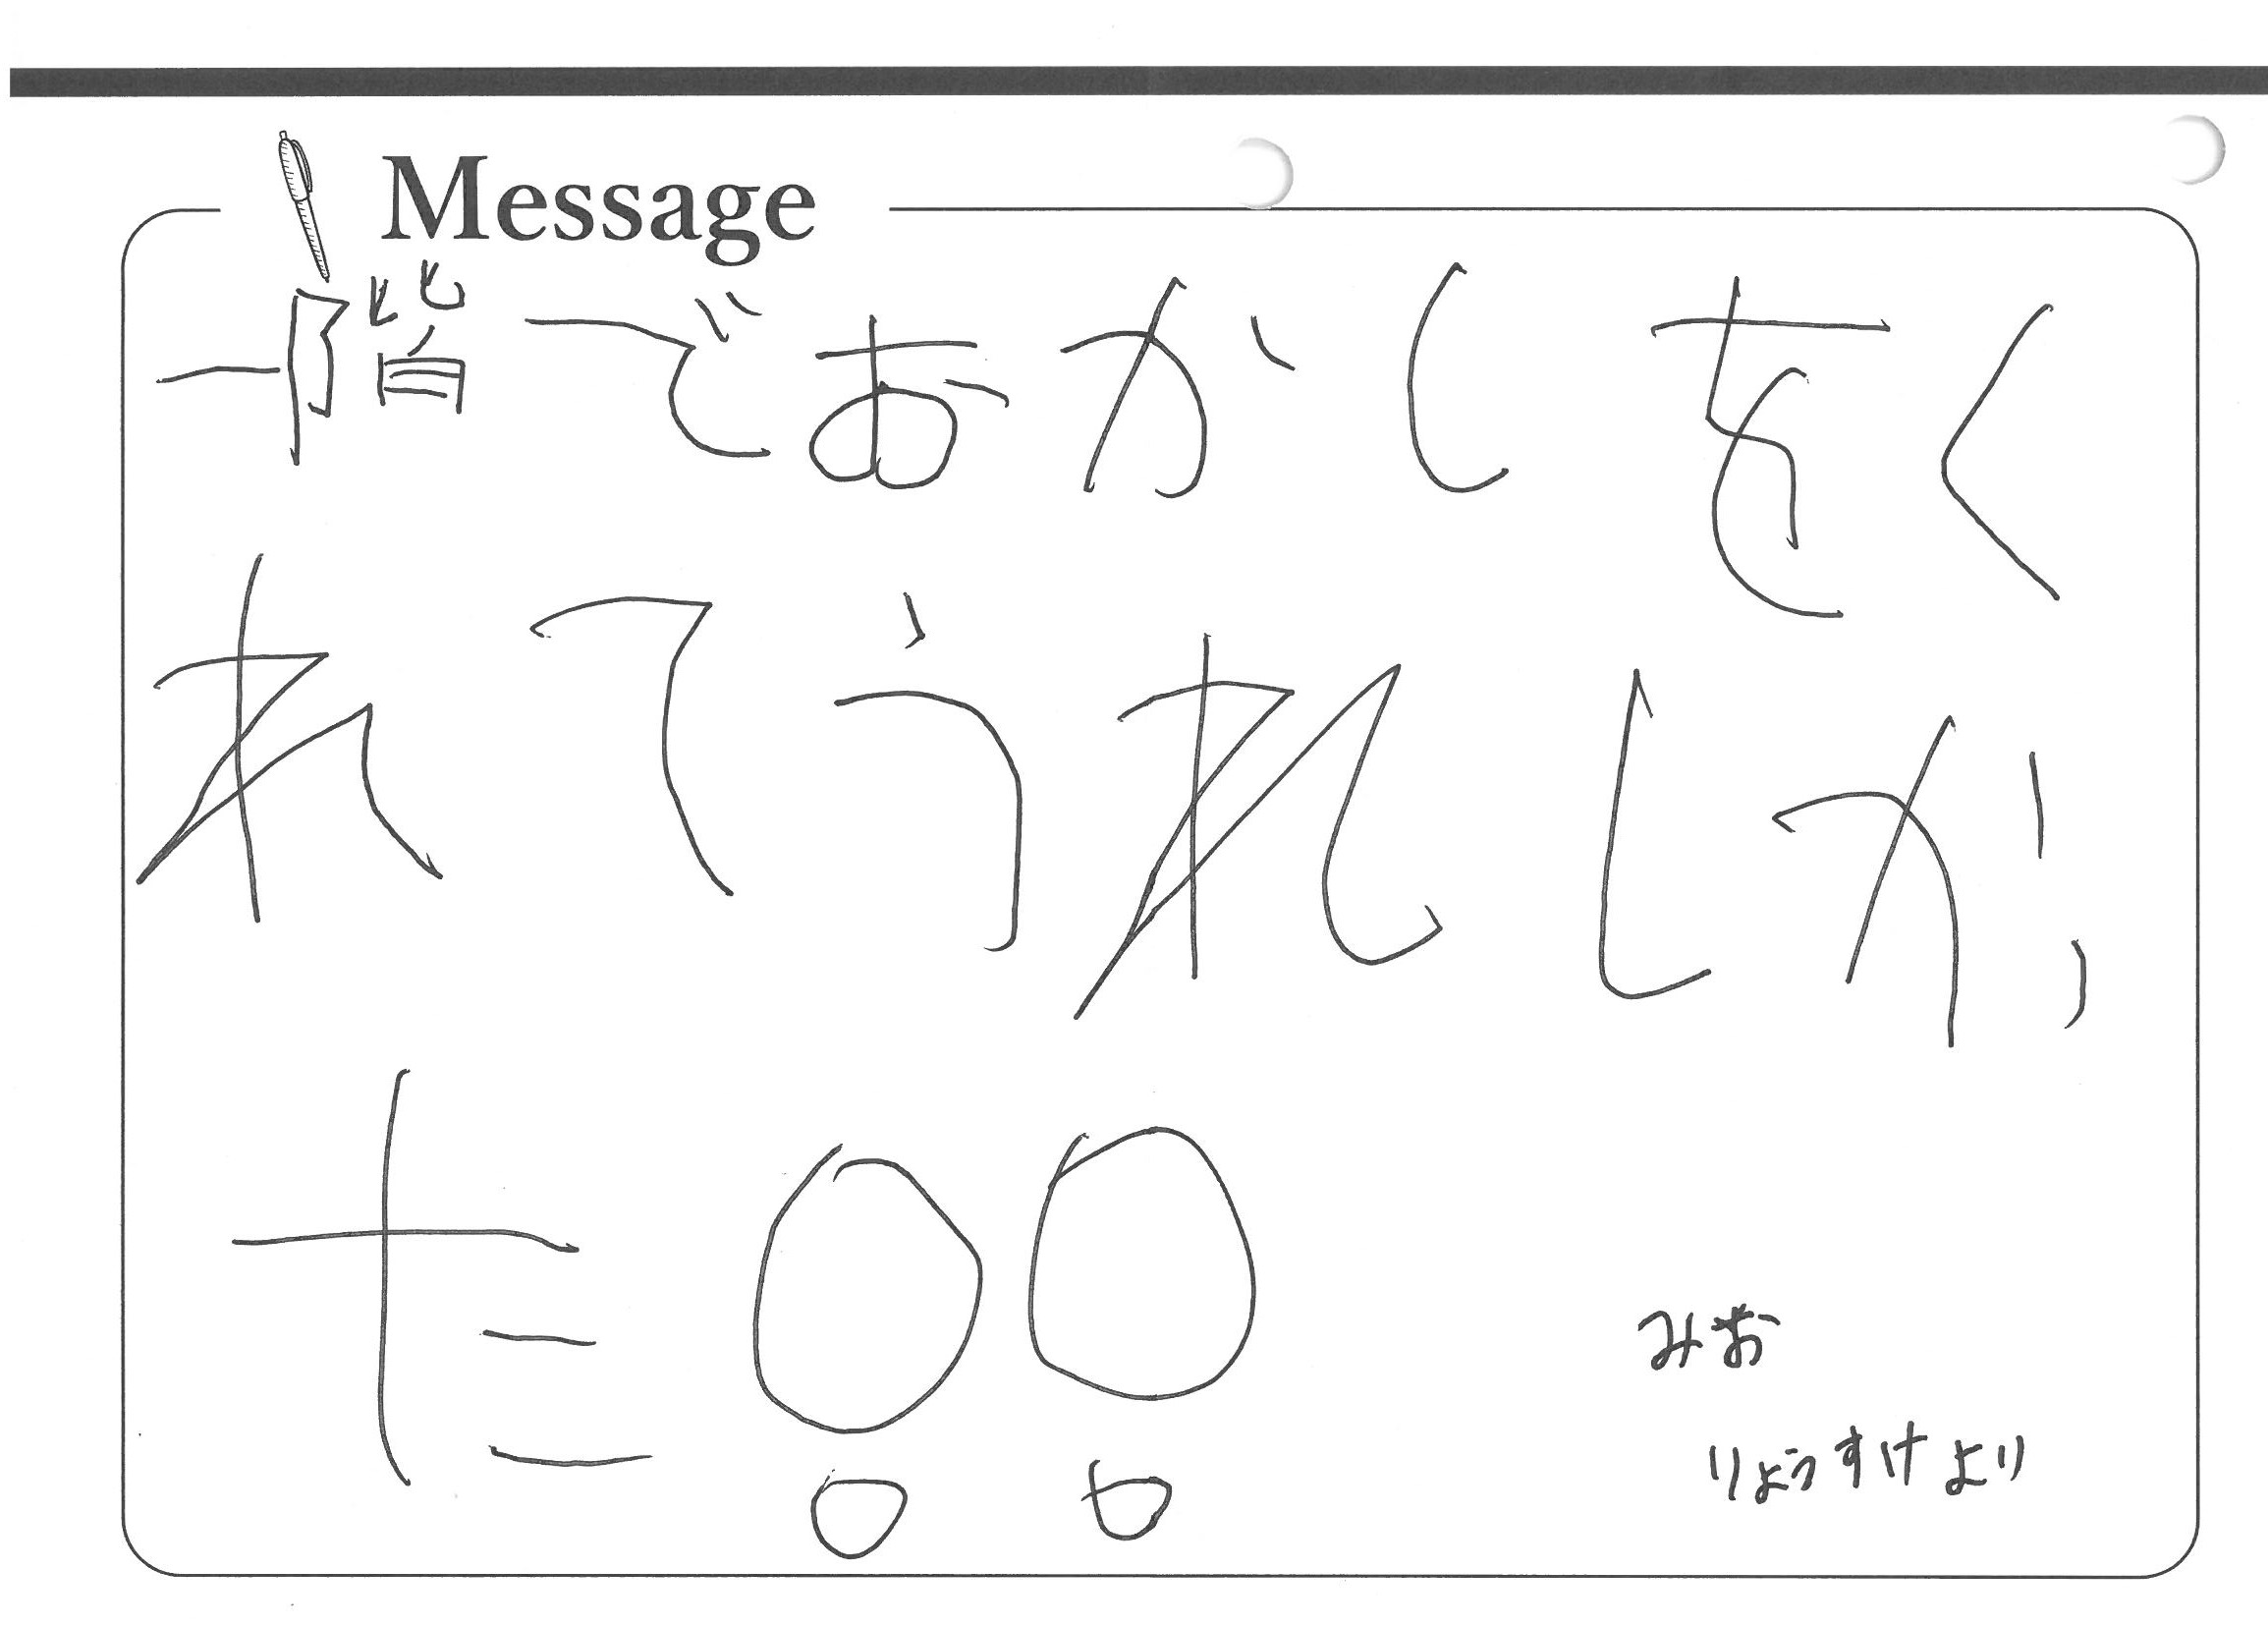 Message
一階でおかしをく
れてうれしか、
た!!
みお
りょうすけより